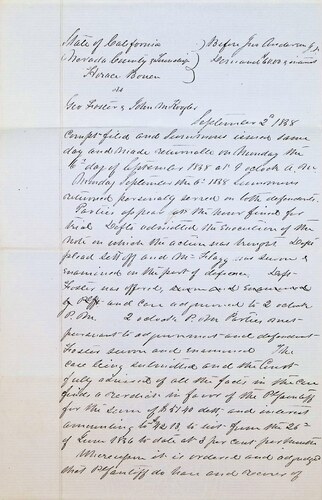 State of California ) Before Jno Anderson J.P.
Nevada County & Township )
Horace Bowen )
vs
Geo Foster & John McKeyler
September 2d 1858
Compt filed and Summons issued same
day and made returnable on Monday the
6th day of September 1858 at 9 oclock A.M.
Monday September the 6th 1858 Summons
returned personaly served on both defendants.
Parties appear at the hour fixed for
trial Defts admitted the Execution of the
Note on which the action was brought Defts
plead Sett off and Mr Flagg was sworn &
examined on the part of defence Deft
Foster was offered, sworn and Examined
by Plff and case adjourned to 2 oclock
P.M. 2 oclock P.M. Parties met
persuant to adjournment and defendant
Foster sworn and examined The
case being submitted and the Court
fully advised of all the facts in the case
finds a verdict in favor of the Plaintiff
for the sum of $ debt, and interest
amounting to to wit from the 28th
of June 1856 to date at 3 per cent per month
Whereupon it is ordered and adjudged
that Plaintiff do have and recover of